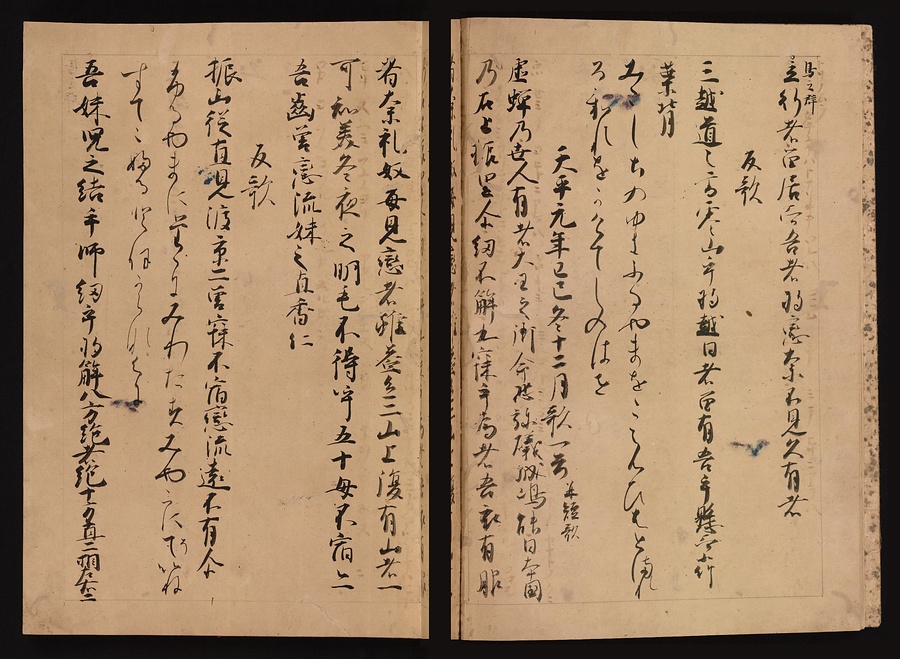 鳥之群
立行者留居而吾者将戀奈不見久有者
反歌
三越道之雪零山乎将越日者留有吾乎懸而小竹
葉背
みこしちのゆきふるやまをこえんひはとまれ
るわれをかけてしのはせ
天平元年己巳冬十二月歌一首并短歌
虚蝉乃世人有者大王之御命恐弥礒城嶋能日本國
乃石上振里尓紐不解丸寐乎為者吾衣有服
者奈礼奴毎見戀者雖益色二山上復有山者一
可知美冬夜之明毛不得呼五十母不宿二
吾齒曽戀流妹之直香仁
反歌
振山従直見渡京二曽寐不宿戀流遠不有尓
ふるやまにみわたすみやこにそいね
すてこふるとほからなくに
吾妹兒之結手師紐乎将解八方絶者絶十方直二相左右二